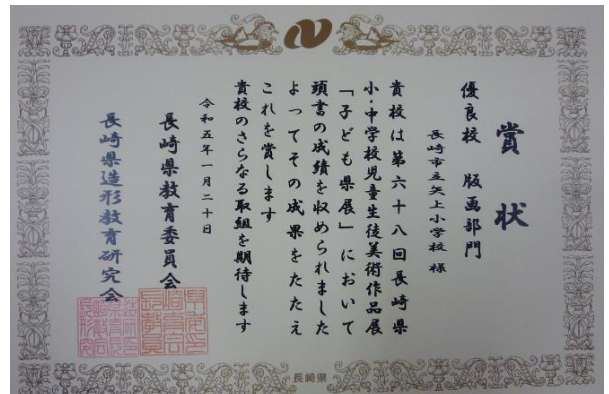 賞状
優良校　版画部門
長崎市立矢上小学校　様
貴校は第六十八回長崎県
小・中学校児童生徒美術作品展
「子ども県展」において
頭書の成績を収められました
よってその成果をたたえ
これを賞します
貴校のさらなる取組を期待します
令和五年一月二十日
長崎県教育委員会
長崎県造形教育研究会
長崎県